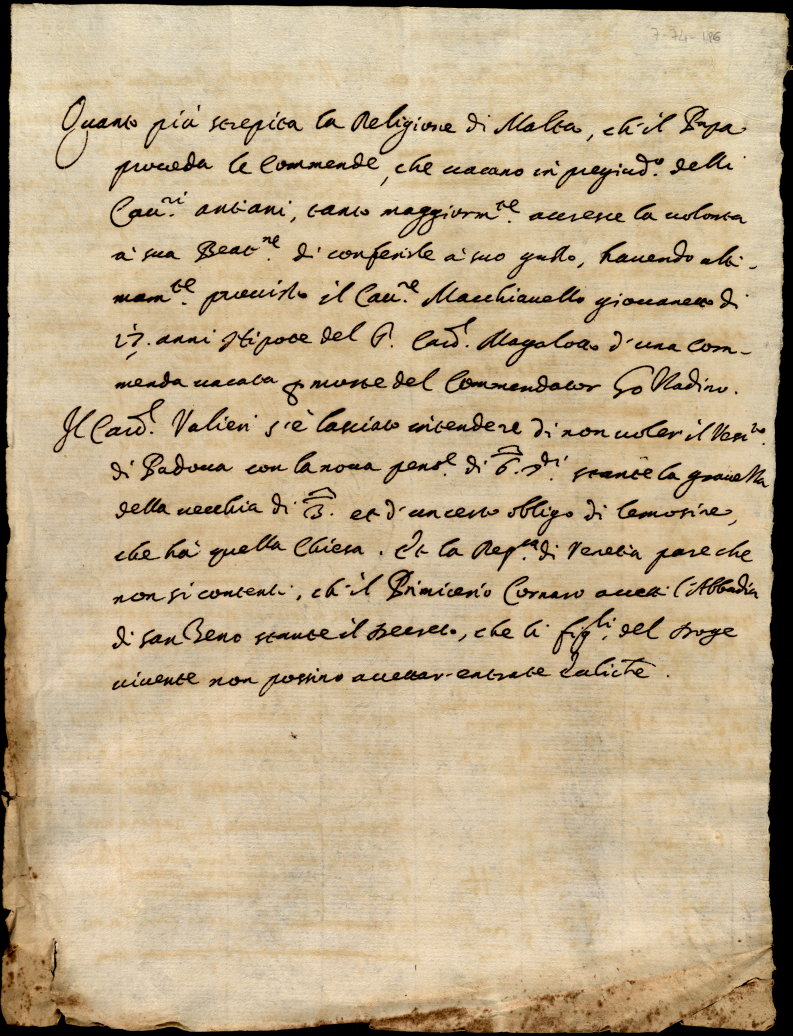 7-74-186
Quanto più strepita la Religione di Malta, ch'il Papa
proveda le Commende, che vacano in pregiud.o delli
Cau.ri antiani, tanto maggiorm.te accresce la volontà
à sua Beat.ne di conferirle à suo gusto, havendo ulti-
mam.te provisto il Cau.re Macchiavello giovanetto di
17. anni Nipote del S. Card.l Magalotto d'una Com-
menda vacata p morte del Commendator
Il Card.l Valieri s'è lasciato intendere di non voler il Vesc.to
di Padova con la nova pens.e di stante la gravezza
della vecchia di et d'un certo obligo di lemosine,
che hà quella Chiesa. Et la Rep.ca di Venetia pare che
non si contenti, ch'il Primicerio Cornaro accetti l'Abbadia
di san Zeno stante il Decreto, che li fig.li del Doge
vivente non possino accettar entrate